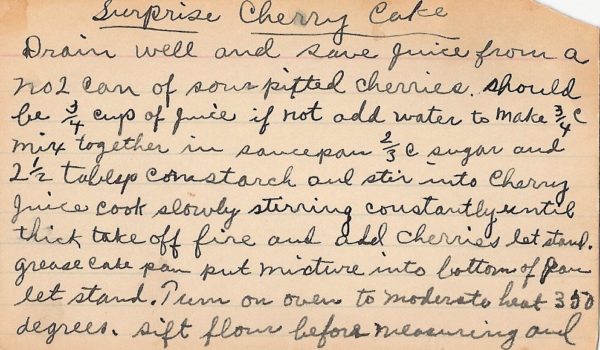 Surprise Cherry Cake
Drain well and save juice from a
no 2 can of sour pitted cherries. should
be 3/4 cup of juice if not add water to make 3/4 c
mix together in saucepan 2/3 c sugar and
2 1/2 tablesp cornstarch and stir into cherry
juice cook slowly stirring constantly until
thick take off fire and add cherries let stand.
grease cake pan put mixture into bottom of pan
let stand. Turn on oven to moderate heat 350
degrees. sift flour before measuring and